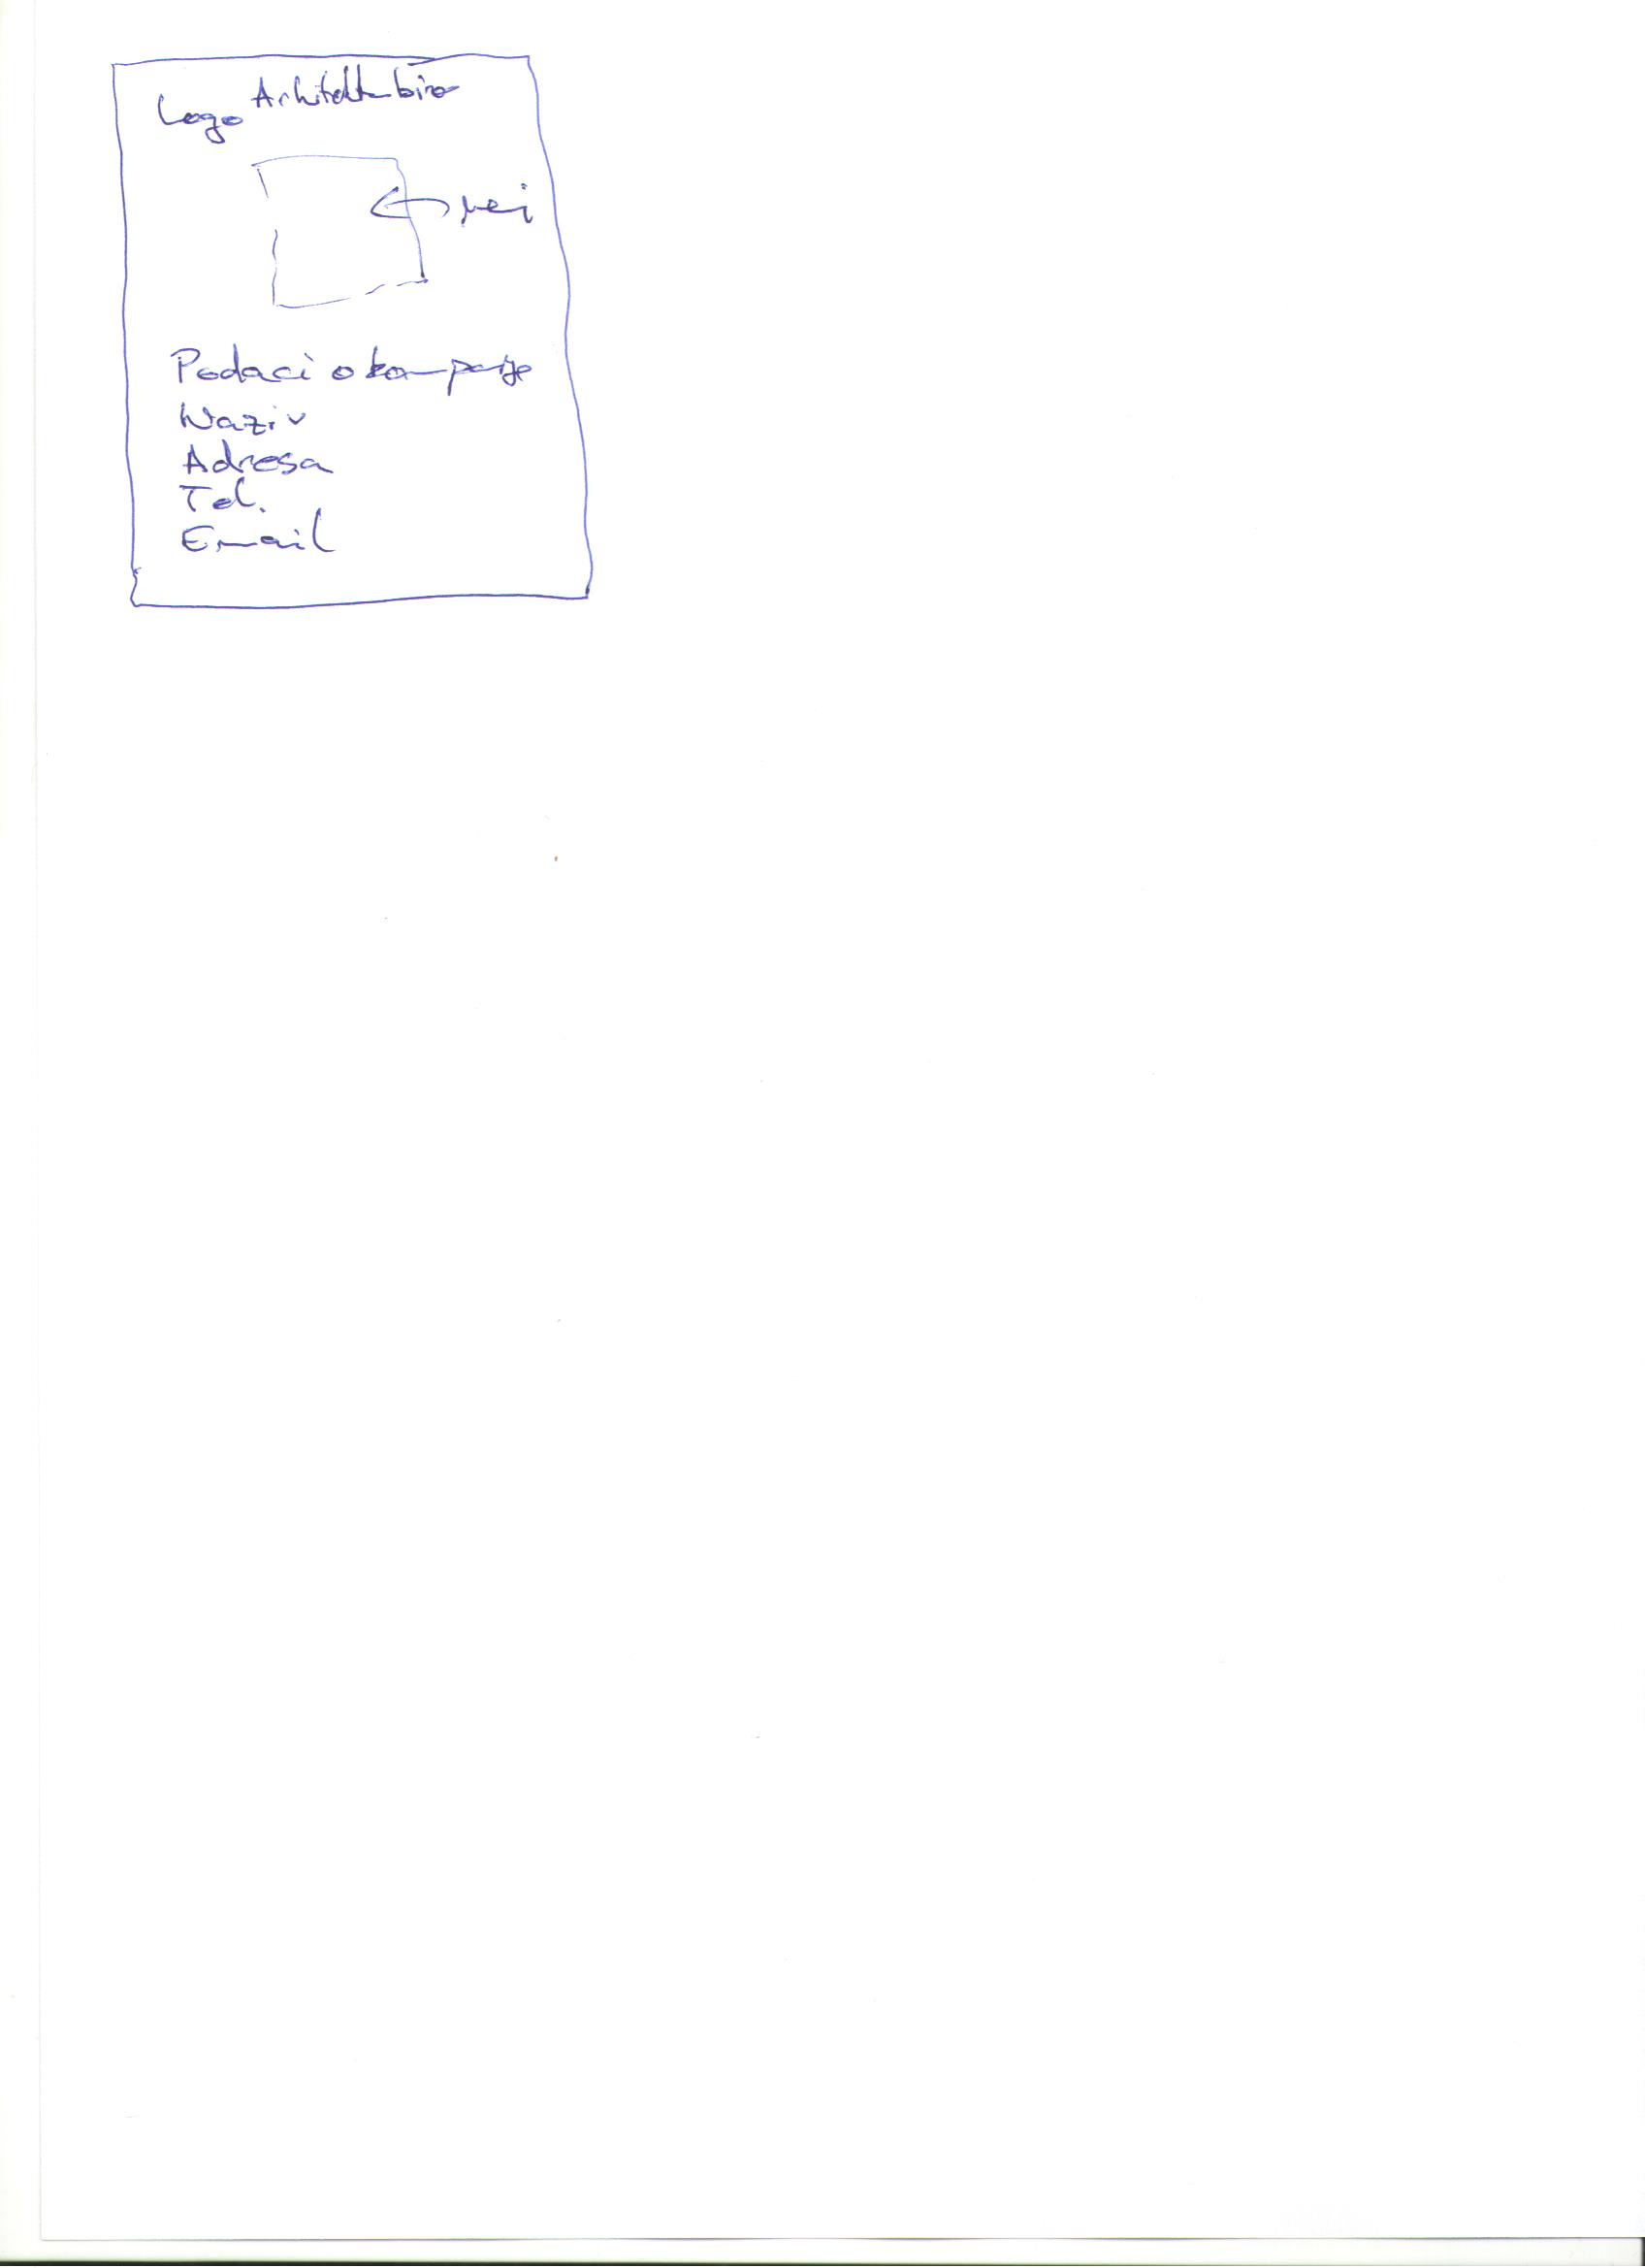 Logo Arhitekt biro
Podaci o kompanije
Naziv
Adresa
Tel.
Email